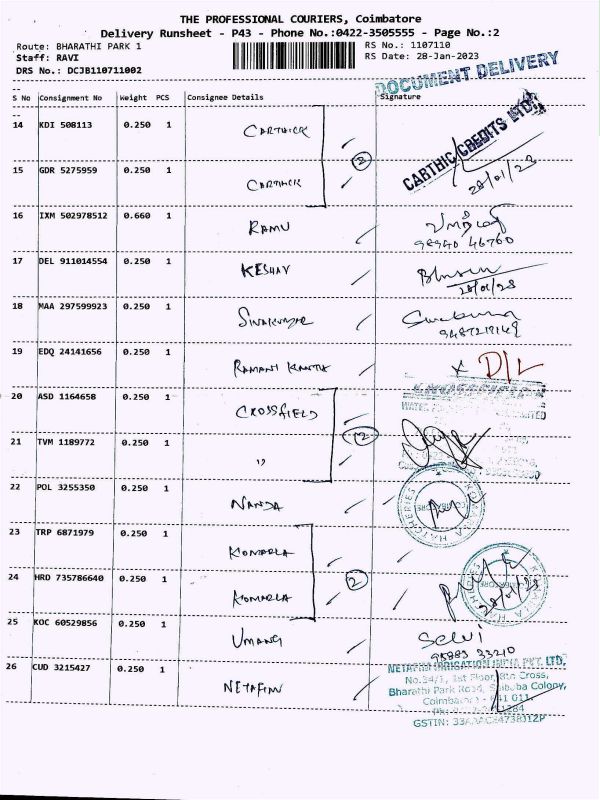 THE PROFESSIONAL COURIERS, Coimbatore
Delivery Runsheet - P43 - Phone No.:0422-3505555 - Page No.:2
Route: BHARATHI PARK 1 RS No.: 1107110
Staff: RAVI RS Date: 28-Jan-2023
DRS No.: DCJB110711002
DOCUMENT DELIVERY
S No Consignment No Weight PCS Consignee Details Signature
14 KDI 508113 0.250 1 CARTHICK
CARTHIC CREDITS LTD.
15 GDR 5275959 0.250 1 CARTHICK 28/01/23
2
16 IXM 502978512 0.660 1 RAMU
98940 46760
17 DEL 911014554 0.250 1 KESHAV
28/01/23
18 MAA 297599923 0.250 1 SIVAKUMAR
9487219149
19 EDQ 24141656 0.250 1 RAMANI KANTH X D/L
20 ASD 1164658 0.250 1 CROSSFIELD
21 TVM 1189772 0.250 1 "
22 POL 3255350 0.250 1 NANDA
KOMARLA HATCHERIES
23 TRP 6871979 0.250 1 KOMARLA
24 HRD 735786640 0.250 1 KOMARLA
2
KOMARLA HATCHERIES
28/01/23
25 KOC 60529856 0.250 1 UMANG Selvi
98883 33210
26 CUD 3215427 0.250 1 NETAFIM
NETAFIM IRRIGATION INDIA PVT. LTD,
No.34/1, 1st Floor, 8th Cross,
Bharathi Park Road, Saibaba Colony,
Coimbatore - 641 011.
GSTIN: